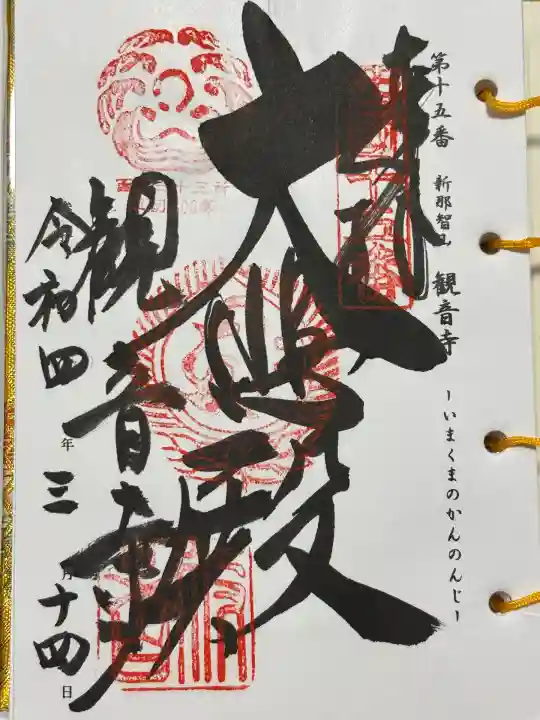 第十五番 新那智山 観音寺 ーいまくまのかんのんじー
奉拝
大悲殿
観音寺
令和四年三月十四日